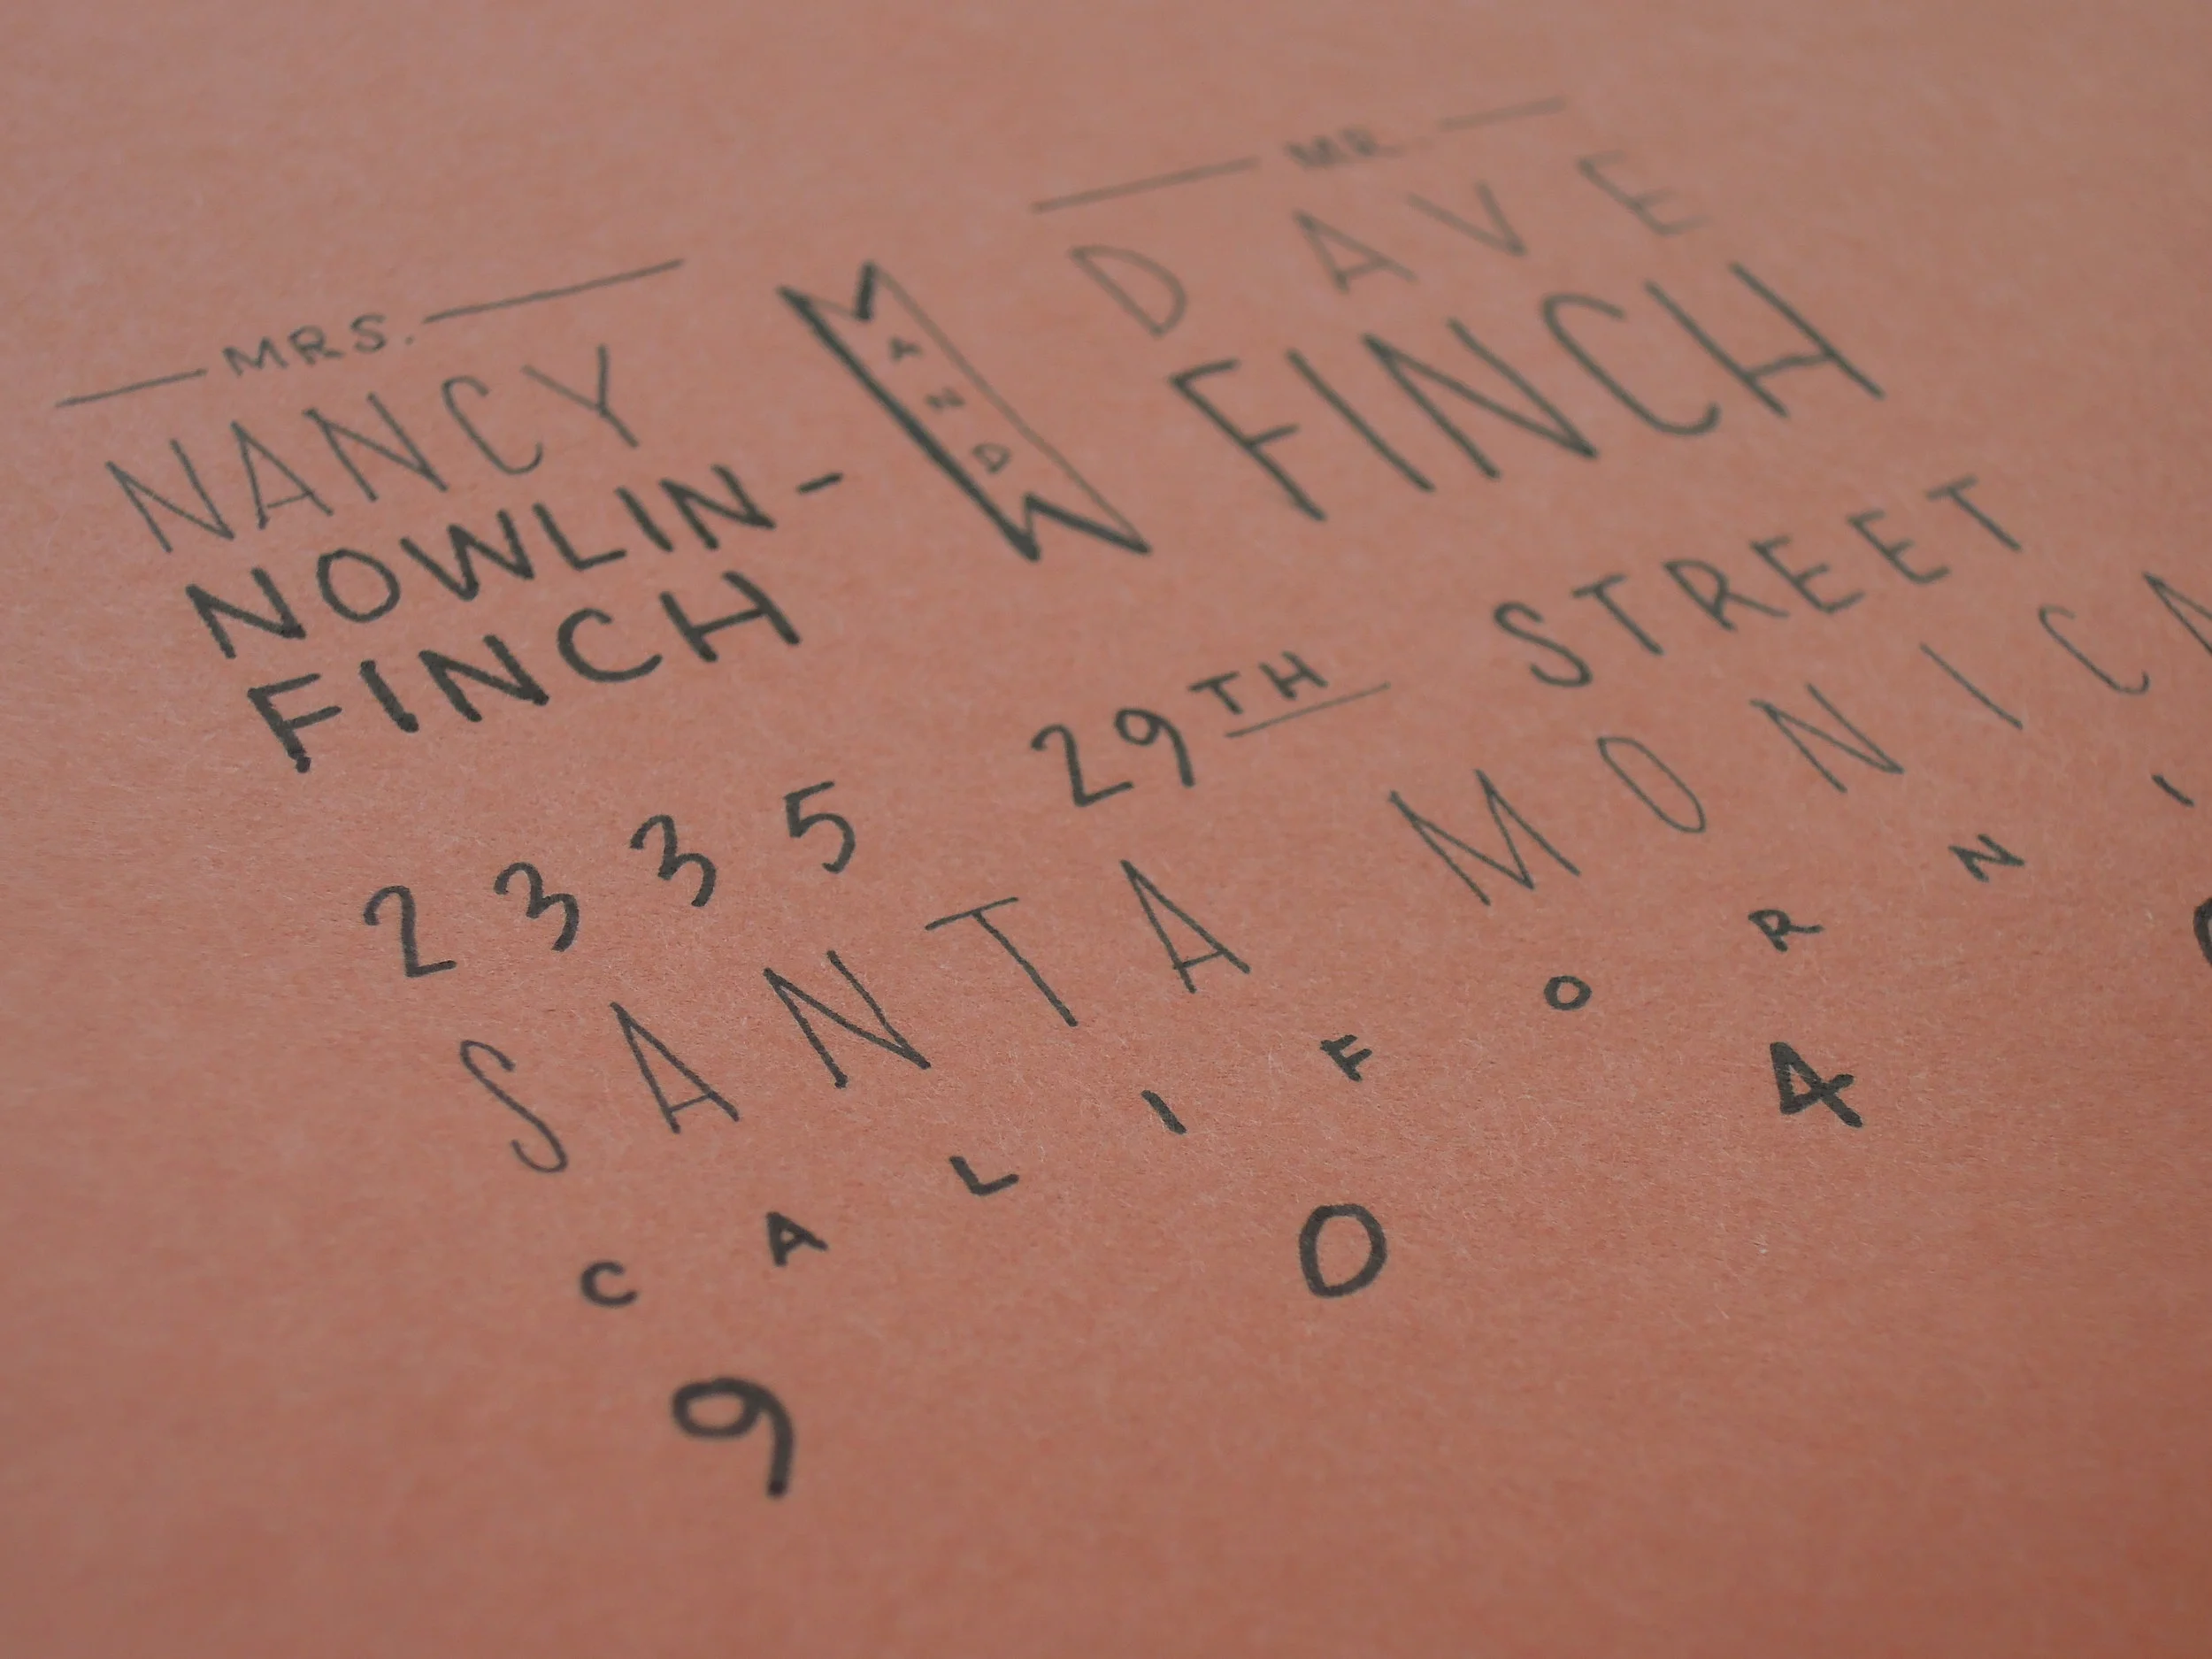 MRS.
NANCY
NOWLIN-
FINCH
AND
MR.
DAVE
FINCH
2335 29TH STREET
SANTA MONICA
CALIFORNI
904